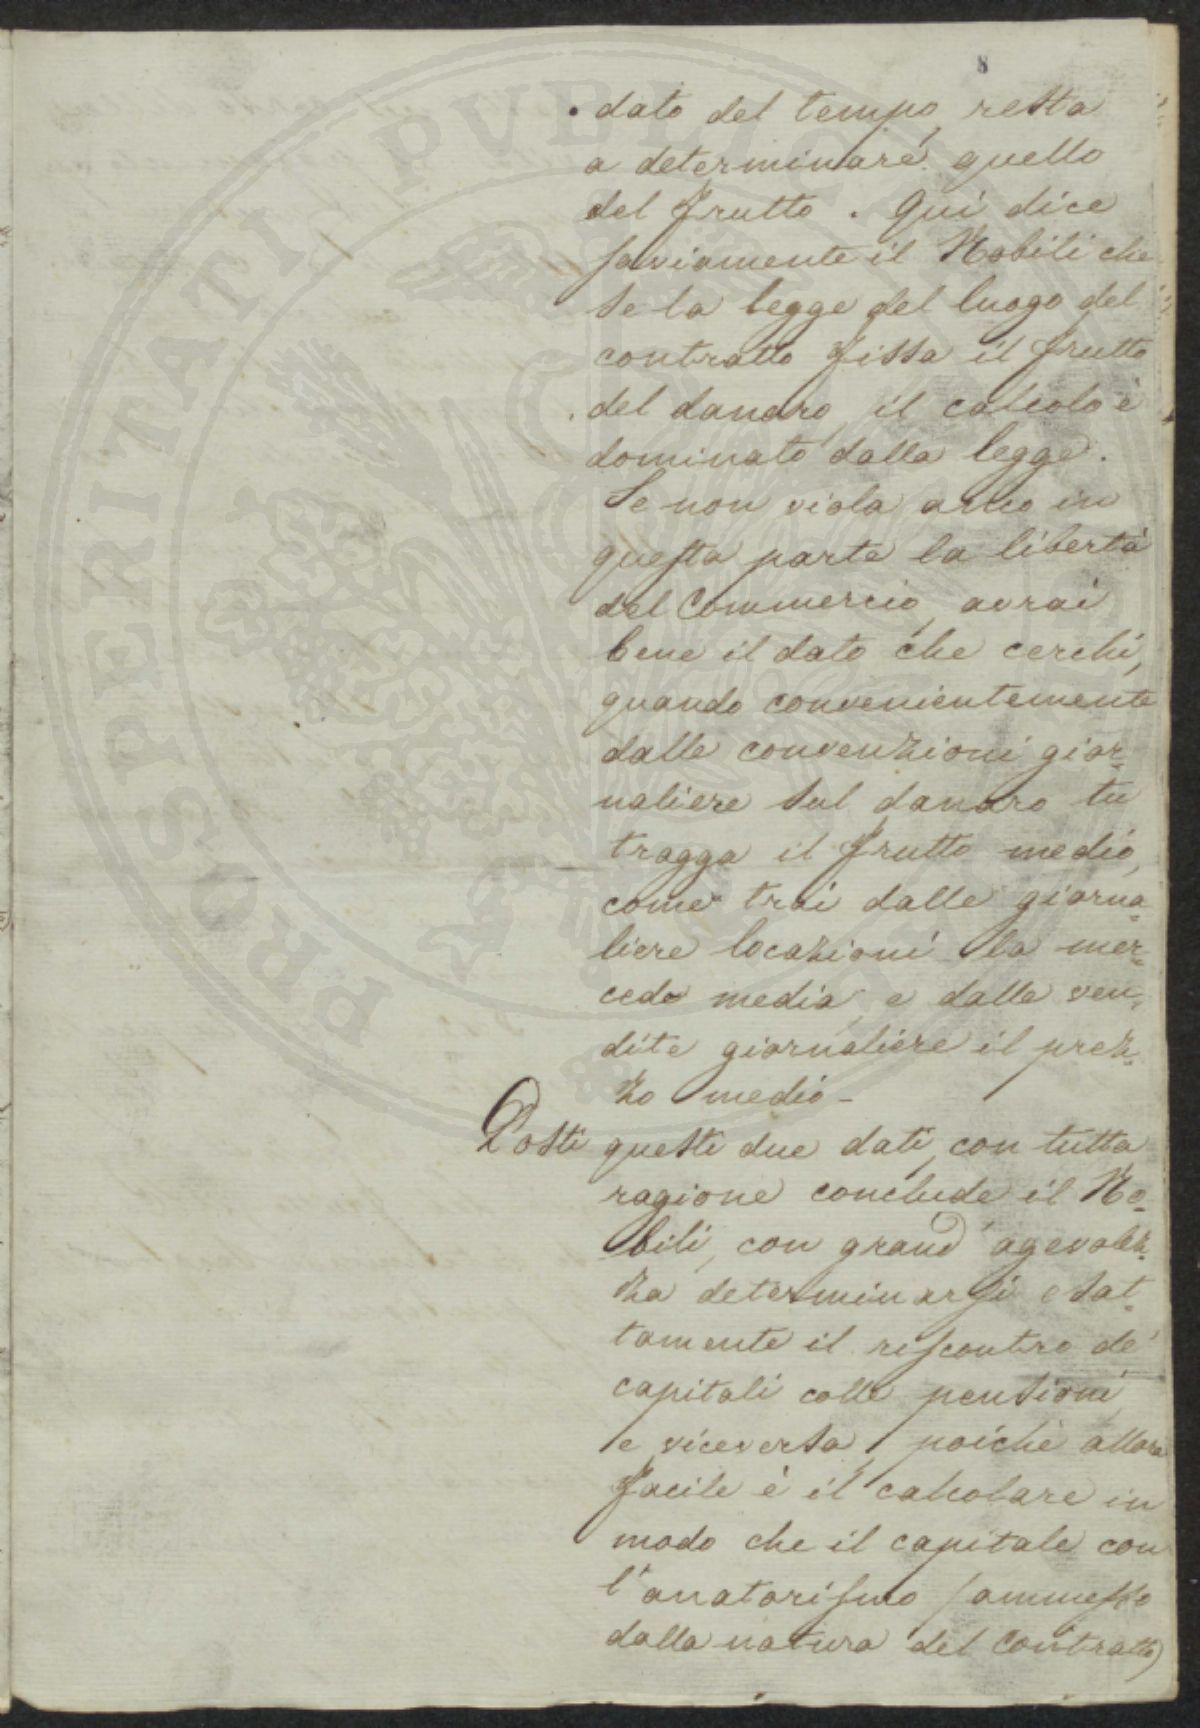 8
dato del tempo, resta
a determinare quello
del frutto. Qui dice
saviamente il Nobili che
se la legge del luogo del
contratto fissa il frutto
del danaro, il calcolo è
dominato dalla legge.
Se non viola anco in
questa parte la libertà
del Commercio, avrai
bene il dato che cerchi,
quando convenientemente
dalle convenzioni gior-
naliere sul danaro tu
tragga il frutto medio,
come trai dalle giorna-
liere locazioni la mer-
cede media, e dalle ven-
dite giornaliere il prez-
zo medio -
Posti questi due dati, con tutta
ragione conclude il No-
bili, con grand' agevolez-
za determinarsi esat-
tamente il riscontro de'
capitali colle pensioni,
e viceversa, poichè allora
facile è il calcolare in
modo che il capitale con
l'anatorismo (ammesso
dalla natura del contratto)
PROSPERITATI PUBLICAE